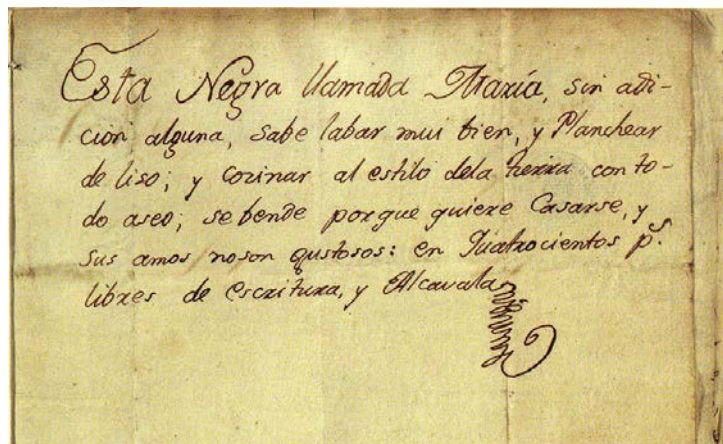 Esta Negra llamada Maria, sin adi-
cion alguna, sabe labar mui bien, y Planchear
de liso; y cozinar al estilo dela tierra con to-
do aseo; se bende porque quiere Casarse, y
sus amos noson gustosos: en Quatrocientos p.s
libres de escritura, y Alcavala